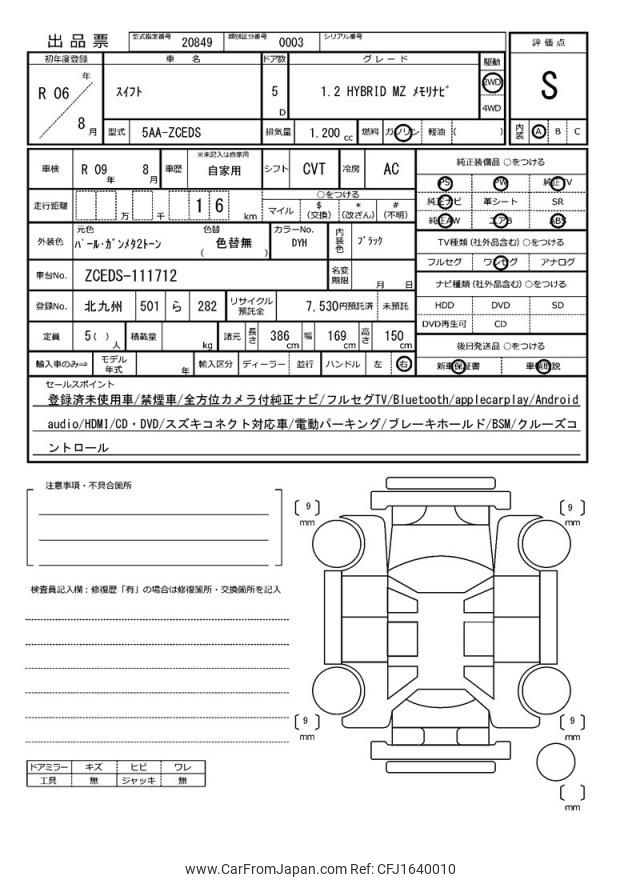 出品票 型式指定番号 20849 類別区分番号 0003 シリアル番号
初年度登録 車名 ドア数 グレード 駆動 評価点
R 06 年 8 月 スイフト 5 D 1.2 HYBRID MZ メモリナビ 2WD 4WD S
型式 5AA-ZCEDS 排気量 1.200 cc 燃料 ガソリン 軽油 ( ) 内装 A B C
車検 R 09 年 8 月 車歴 ※未記入は自家用 自家用 シフト CVT 冷房 AC 純正装備品 ○をつける
PS PW 純正TV
走行距離 万 千 1 6 km ○をつける 純正ナビ 革シート SR
マイル $ (交換) * (改ざん) # (不明) 純正AW エアB ABS
外装色 元色 パール・ガンメタ2トーン 色替 ( 色替無 ) カラーNo. DYH 内装色 ブラック TV種類 (社外品含む) ○をつける
フルセグ ワンセグ アナログ
車台No. ZCEDS-111712 名変期限 月 日 ナビ種類 (社外品含む) ○をつける
登録No. 北九州 501 ら 282 リサイクル預託金 7,530円預託済 未預託 HDD DVD SD
DVD再生可 CD
定員 5 ( ) 人 積載量 kg 諸元 長さ 386 cm 幅 169 cm 高さ 150 cm 後日発送品 ○をつける
輸入車のみ⇒ モデル年式 年 輸入区分 ディーラー 並行 ハンドル 左 右 新車保証書 車輌取説
セールスポイント
登録済未使用車/禁煙車/全方位カメラ付純正ナビ/フルセグTV/Bluetooth/applecarplay/Android
audio/HDMI/CD・DVD/スズキコネクト対応車/電動パーキング/ブレーキホールド/BSM/クルーズコ
ントロール
注意事項・不具合箇所
[ 9 ] mm [ 9 ] mm
検査員記入欄：修復歴「有」の場合は修復箇所・交換箇所を記入
[ 9 ] mm [ 9 ] mm
ドアミラー キズ ヒビ ワレ
工具 無 ジャッキ 無
[ ] mm
www.CarFromJapan.com Ref: CFJ1640010